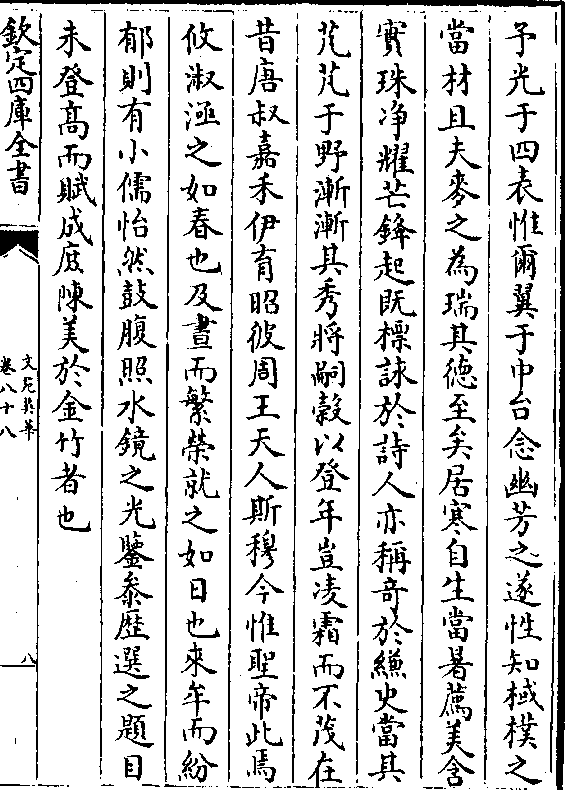 予光于四表惟爾翼于中台念幽芳之遂性知棫樸之
當材且夫麥之為瑞其德至矣居寒自生當暑薦美含
實珠净耀芒鋒起既標詠於詩人亦稱竒於縑史當其
芃芃于野漸漸其秀將嗣榖以登年豈凌霜而不茂在
昔唐叔嘉禾伊育昭彼周王天人斯穆今惟聖帝此焉
攸淑泌之如春也及晝而繁榮就之如日也來午而紛
郁則有小儒怡然鼓腹照水鏡之光鑒忝歴選之題目
未登髙而賦成庻陳美於金竹者也
欽定四庫全書
文苑英華
卷八十八
八